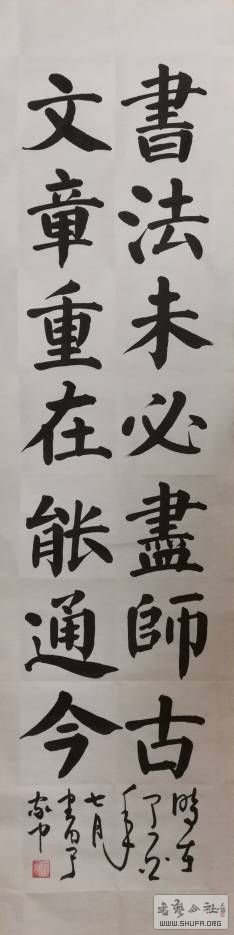 書法未必盡師古
文章重在能通今
時在
年
七月
書於
家中
WWW.SHUFA.ORG